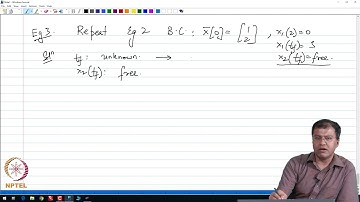 Eg 3. Repeat Eg 2 B.C: x̄[0] = [1 2], x₁(2)=0
x₁(tf)= 5
x₂(tf)= free
Solⁿ tf: unknown →
x₂(tf): free.
NPTEL